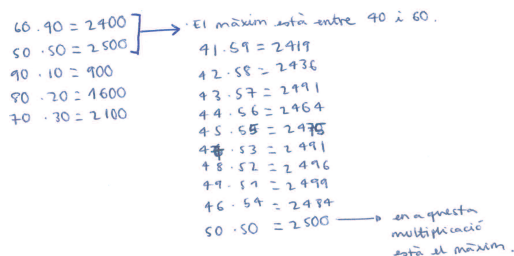 60 · 40 = 2400
50 · 50 = 2500
90 · 10 = 900
80 · 20 = 1600
70 · 30 = 2100
· El màxim està entre 40 i 60.
41 · 59 = 2419
42 · 58 = 2436
43 · 57 = 2491
44 · 56 = 2464
45 · 55 = 2475
47 · 53 = 2491
48 · 52 = 2496
49 · 51 = 2499
46 · 54 = 2484
50 · 50 = 2500
en aquesta
multiplicació
està el màxim.